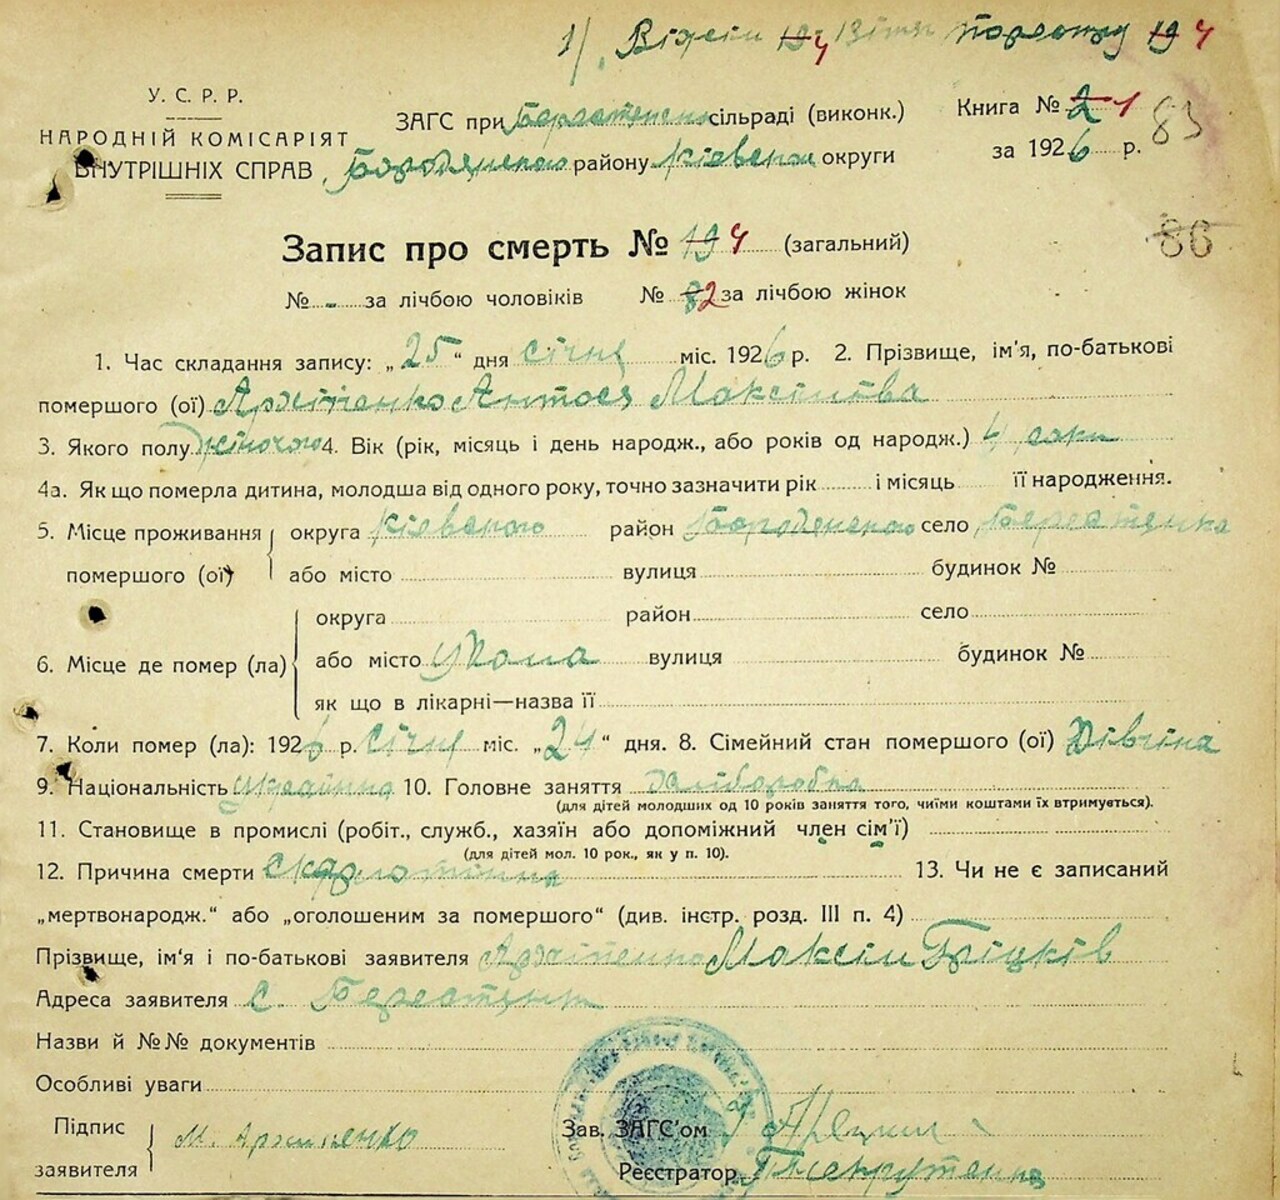 1/
У. С. Р. Р.
НАРОДНІЙ КОМІСАРІЯТ
ВНУТРІШНІХ СПРАВ
ЗАГС при сільраді (виконк.)
Бородянского району Кієвскои округи
Книга № 2 1 83
за 1926 р.
Запис про смерть № 19 4 (загальний)
86
№ - за лічбою чоловіків № 2 за лічбою жінок
1. Час складання запису: „25“ дня січня міс. 1926 р. 2. Прізвище, ім'я, по-батькові
помершого (ої) Архіпенко Антося Максімова
3. Якого полу жіночого 4. Вік (рік, місяць і день народж., або років од народж.) 4 роки
4а. Як що померла дитина, молодша від одного року, точно зазначити рік і місяць її народження.
5. Місце проживання округа Кієвского район Бородянского село
помершого (ої) або місто вулиця будинок №
округа район село
6. Місце де помер (ла) або місто вулиця будинок №
як що в лікарні—назва її
7. Коли помер (ла): 1926 р. січня міс. „24“ дня. 8. Сімейний стан помершого (ої) Дівчіна
9. Національність українка 10. Головне заняття хліборобка
(для дітей молодших од 10 років заняття того, чиїми коштами їх втримується).
11. Становище в промислі (робіт., служб., хазяїн або допоміжний член сім'ї)
(для дітей мол. 10 рок., як у п. 10).
12. Причина смерти Скарлатина 13. Чи не є записаний
„мертвонародж.“ або „оголошеним за помершого“ (див. інстр. розд. III п. 4)
Прізвище, ім'я і по-батькові заявителя Архіпенко Максім Гріцків
Адреса заявителя с.
Назви й №№ документів
Особливі уваги
Підпис
заявителя М. Архипенко
Зав. ЗАГС'ом
Реєстратор